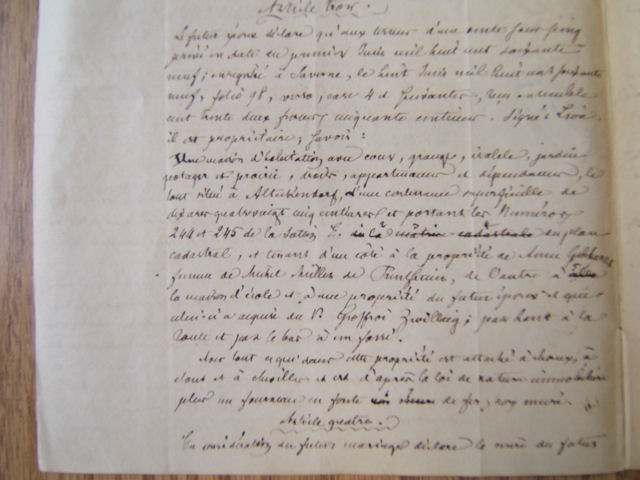 Article trois.
Le futur époux déclare qu'aux termes d'une vente sous seing
privé en date du premier Juin mil huit cent soixante
neuf, enregistré à Saverne, le huit Juin mil huit cent soixante
neuf, folio 98, verso, case 4 et suivantes, reçu ensemble
cent trente deux francs cinquante centimes. Signé:
il est propriétaire, savoir:
Une maison d'habitation avec cour, grange, étable, jardin
potager et prairie, droits, appartenances et dépendances, le
tout situé à d'une contenance superficielle de
dix ares quatrevingt cinq centiares et portant les Numéros
244 et 245 de la Section E. de la matrice cadastrale du plan
cadastral, et tenant d'un côté à la propriété de Anne
femme de Michel Müller de de l'autre à
la maison d'école et à une propriété du futur époux et que
celui-ci a acquise du Sr Geoffroi Zwilling; par haut à la
route et par le bas à un fossé.
Avec tout ce qui dans cette propriété est attaché à chaux, à
clous et à cheville et est d'après la loi de nature immobilière
plus un fourneau en fonte de fer, non muré.
Article quatre.
En considération du futur mariage déclare le père du futur